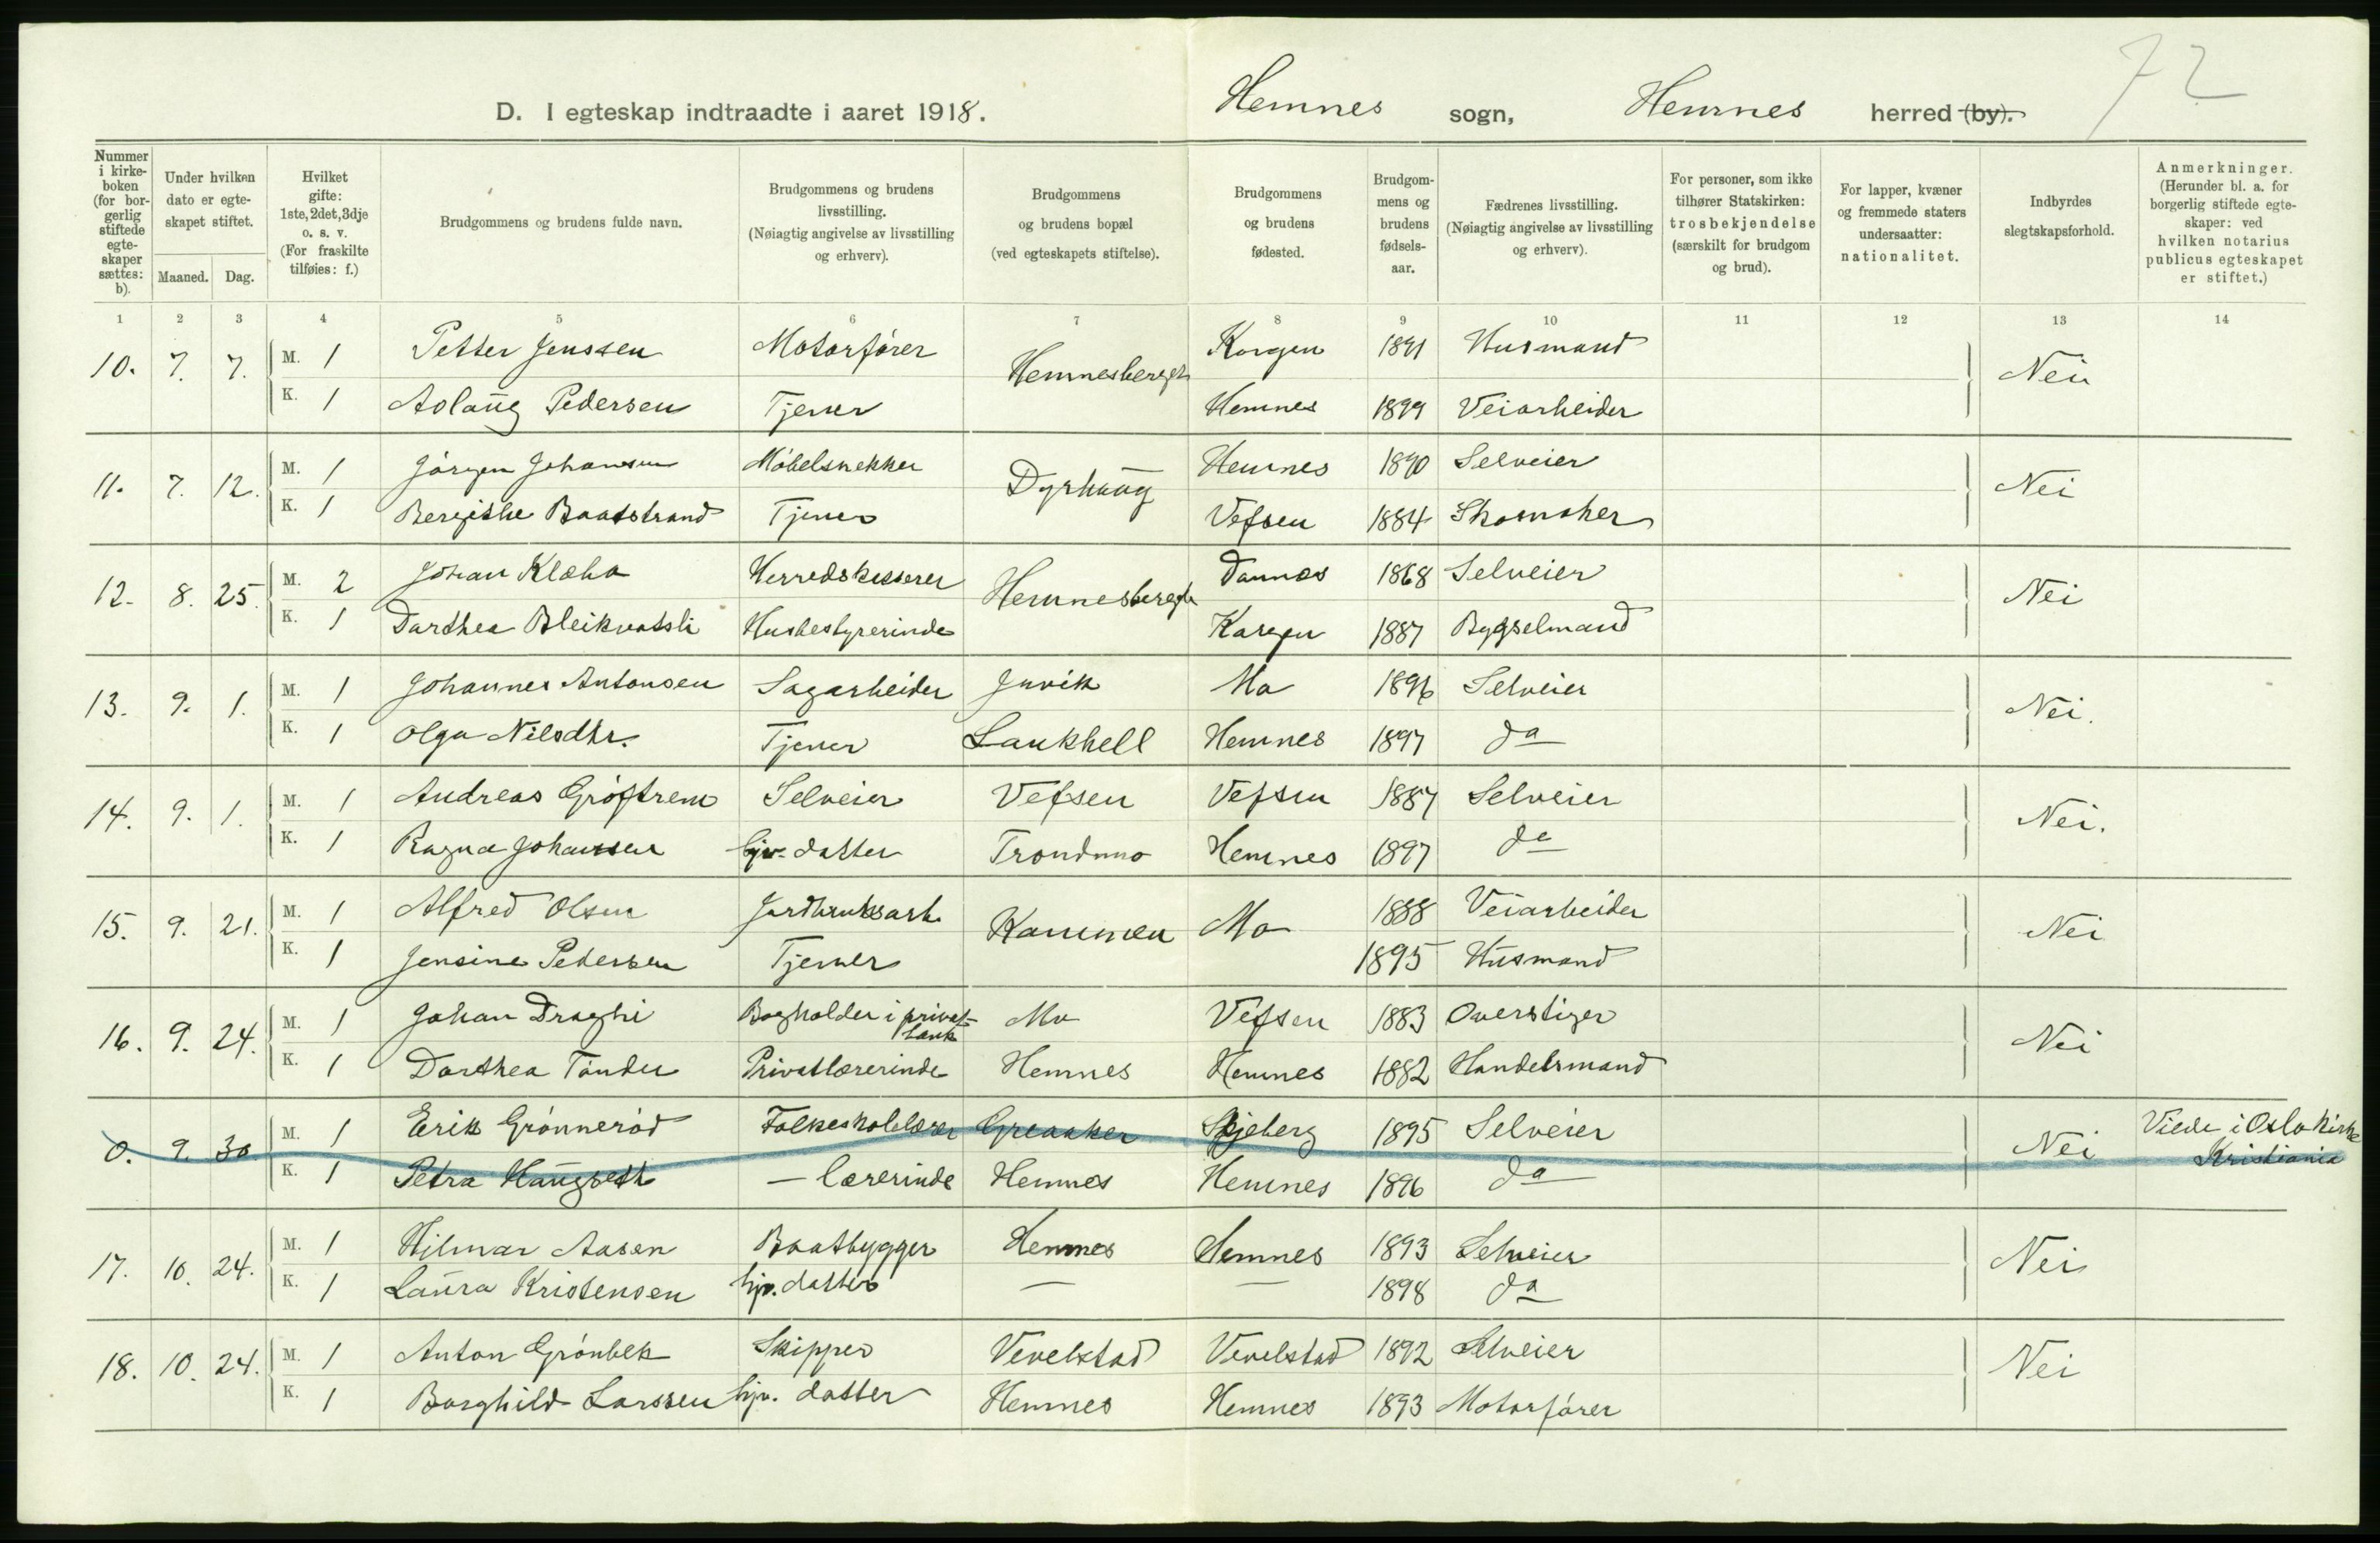 72
D. I egteskap indtraadte i aaret 1918. Hemnes sogn, Hemnes herred (by).
Nummer i kirkeboken (for borgerlig stiftede egteskaper sættes: b).
Under hvilken dato er egteskapet stiftet.
Maaned. Dag.
Hvilket gifte: 1ste, 2det, 3dje o. s. v. (For fraskilte tilføies: f.)
Brudgommens og brudens fulde navn.
Brudgommens og brudens livsstilling. (Nøiagtig angivelse av livsstilling og erhverv).
Brudgommens og brudens bopæl (ved egteskapets stiftelse).
Brudgommens og brudens fødested.
Brudgommens og brudens fødselsaar.
Fædrenes livsstilling. (Nøiagtig angivelse av livsstilling og erhverv).
For personer, som ikke tilhører Statskirken: trosbekjendelse (særskilt for brudgom og brud).
For lapper, kvæner og fremmede staters undersaatter: nationalitet.
Indbyrdes slegtskapsforhold.
Anmerkninger. (Herunder bl. a. for borgerlig stiftede egteskaper: ved hvilken notarius publicus egteskapet er stiftet.)
1 2 3 4 5 6 7 8 9 10 11 12 13 14
10. 7. 7. M. 1 Petter Jenssen Motorfører Hemnesberget Korgen 1891 Husmand Nei
K. 1 Aslaug Pedersen Tjener Hemnes 1899 Veiarbeider
11. 7. 12. M. 1 Jørgen Johansen Møbelsnekker Dyrhaug Hemnes 1890 Selveier Nei
K. 1 Bergithe Baatstrand Tjener Vefsen 1884 Skomaker
12. 8. 25. M. 2 Johan Klæbo Herredskasserer Hemnesberget Dønnes 1868 Selveier Nei
K. 1 Dorthea Bleikvatsli Husbestyrerinde Korgen 1887 Bygselmand
13. 9. 1. M. 1 Johannes Antonsen Sagarbeider Juvik Mo 1896 Selveier Nei.
K. 1 Olga Nilsdtr. Tjener Laukhell Hemnes 1897 do
14. 9. 1. M. 1 Andreas Grøftrem Selveier Vefsen Vefsen 1887 Selveier Nei.
K. 1 Ragna Johansen hjv. datter Trondmo Hemnes 1897 do
15. 9. 21. M. 1 Alfred Olsen Jordbruksarb. Kammen Mo 1888 Veiarbeider Nei
K. 1 Jensine Pedersen Tjener 1895 Husmand
16. 9. 24. M. 1 Johan Draghi Bogholder i privat bank Mo Vefsen 1883 Overstiger Nei
K. 1 Dorthea Tander Privatlærerinde Hemnes Hemnes 1882 Handelsmand
0. 9. 30 M. 1 Erik Grønnerød Folkeskolelærer Greaaker Skjeberg 1895 Selveier Nei Viede i Oslo kirke
K. 1 Petra Haugseth — lærerinde Hemnes Hemnes 1896 do Kristiania
17. 10. 24. M. 1 Hilmar Aasen Baatbygger Hemnes Hemnes 1893 Selveier Nei
K. 1 Laura Kristensen hjv. datter — — 1898 do
18. 10. 24. M. 1 Anton Grønbek Skipper Vevelstad Vevelstad 1892 Selveier Nei
K. 1 Borghild Larssen hjv. datter Hemnes Hemnes 1893 Motorfører